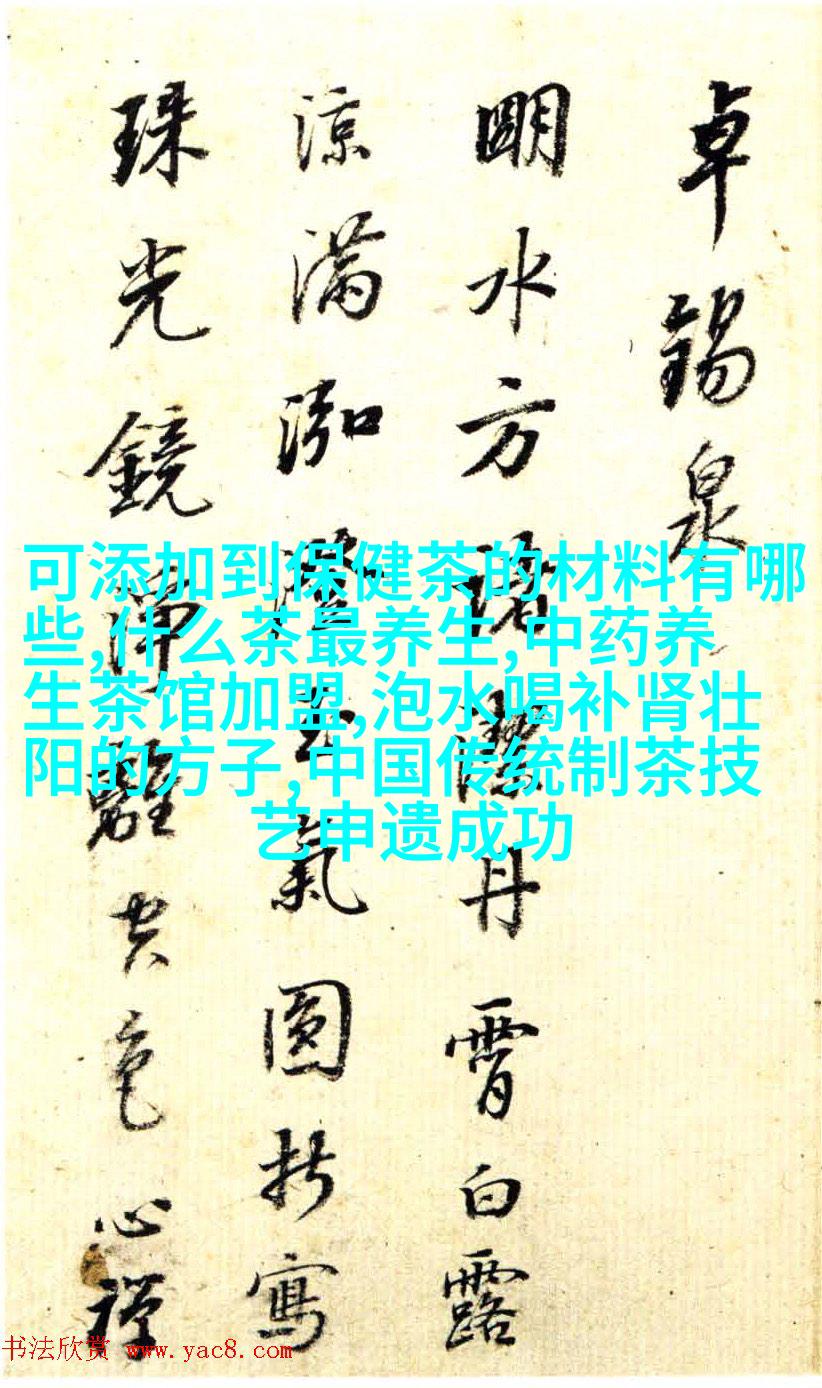 卓錫泉
明水方諸潔丹霄白露
涼滿泓澄氣圓折寫
珠光鏡淨離空色心禪
可添加到保健茶的材料有哪
些,什么茶最养生,中药养
生茶馆加盟,泡水喝补肾壮
阳的方子,中国传统制茶技
艺申遗成功
书法欣赏 www.yac8.com